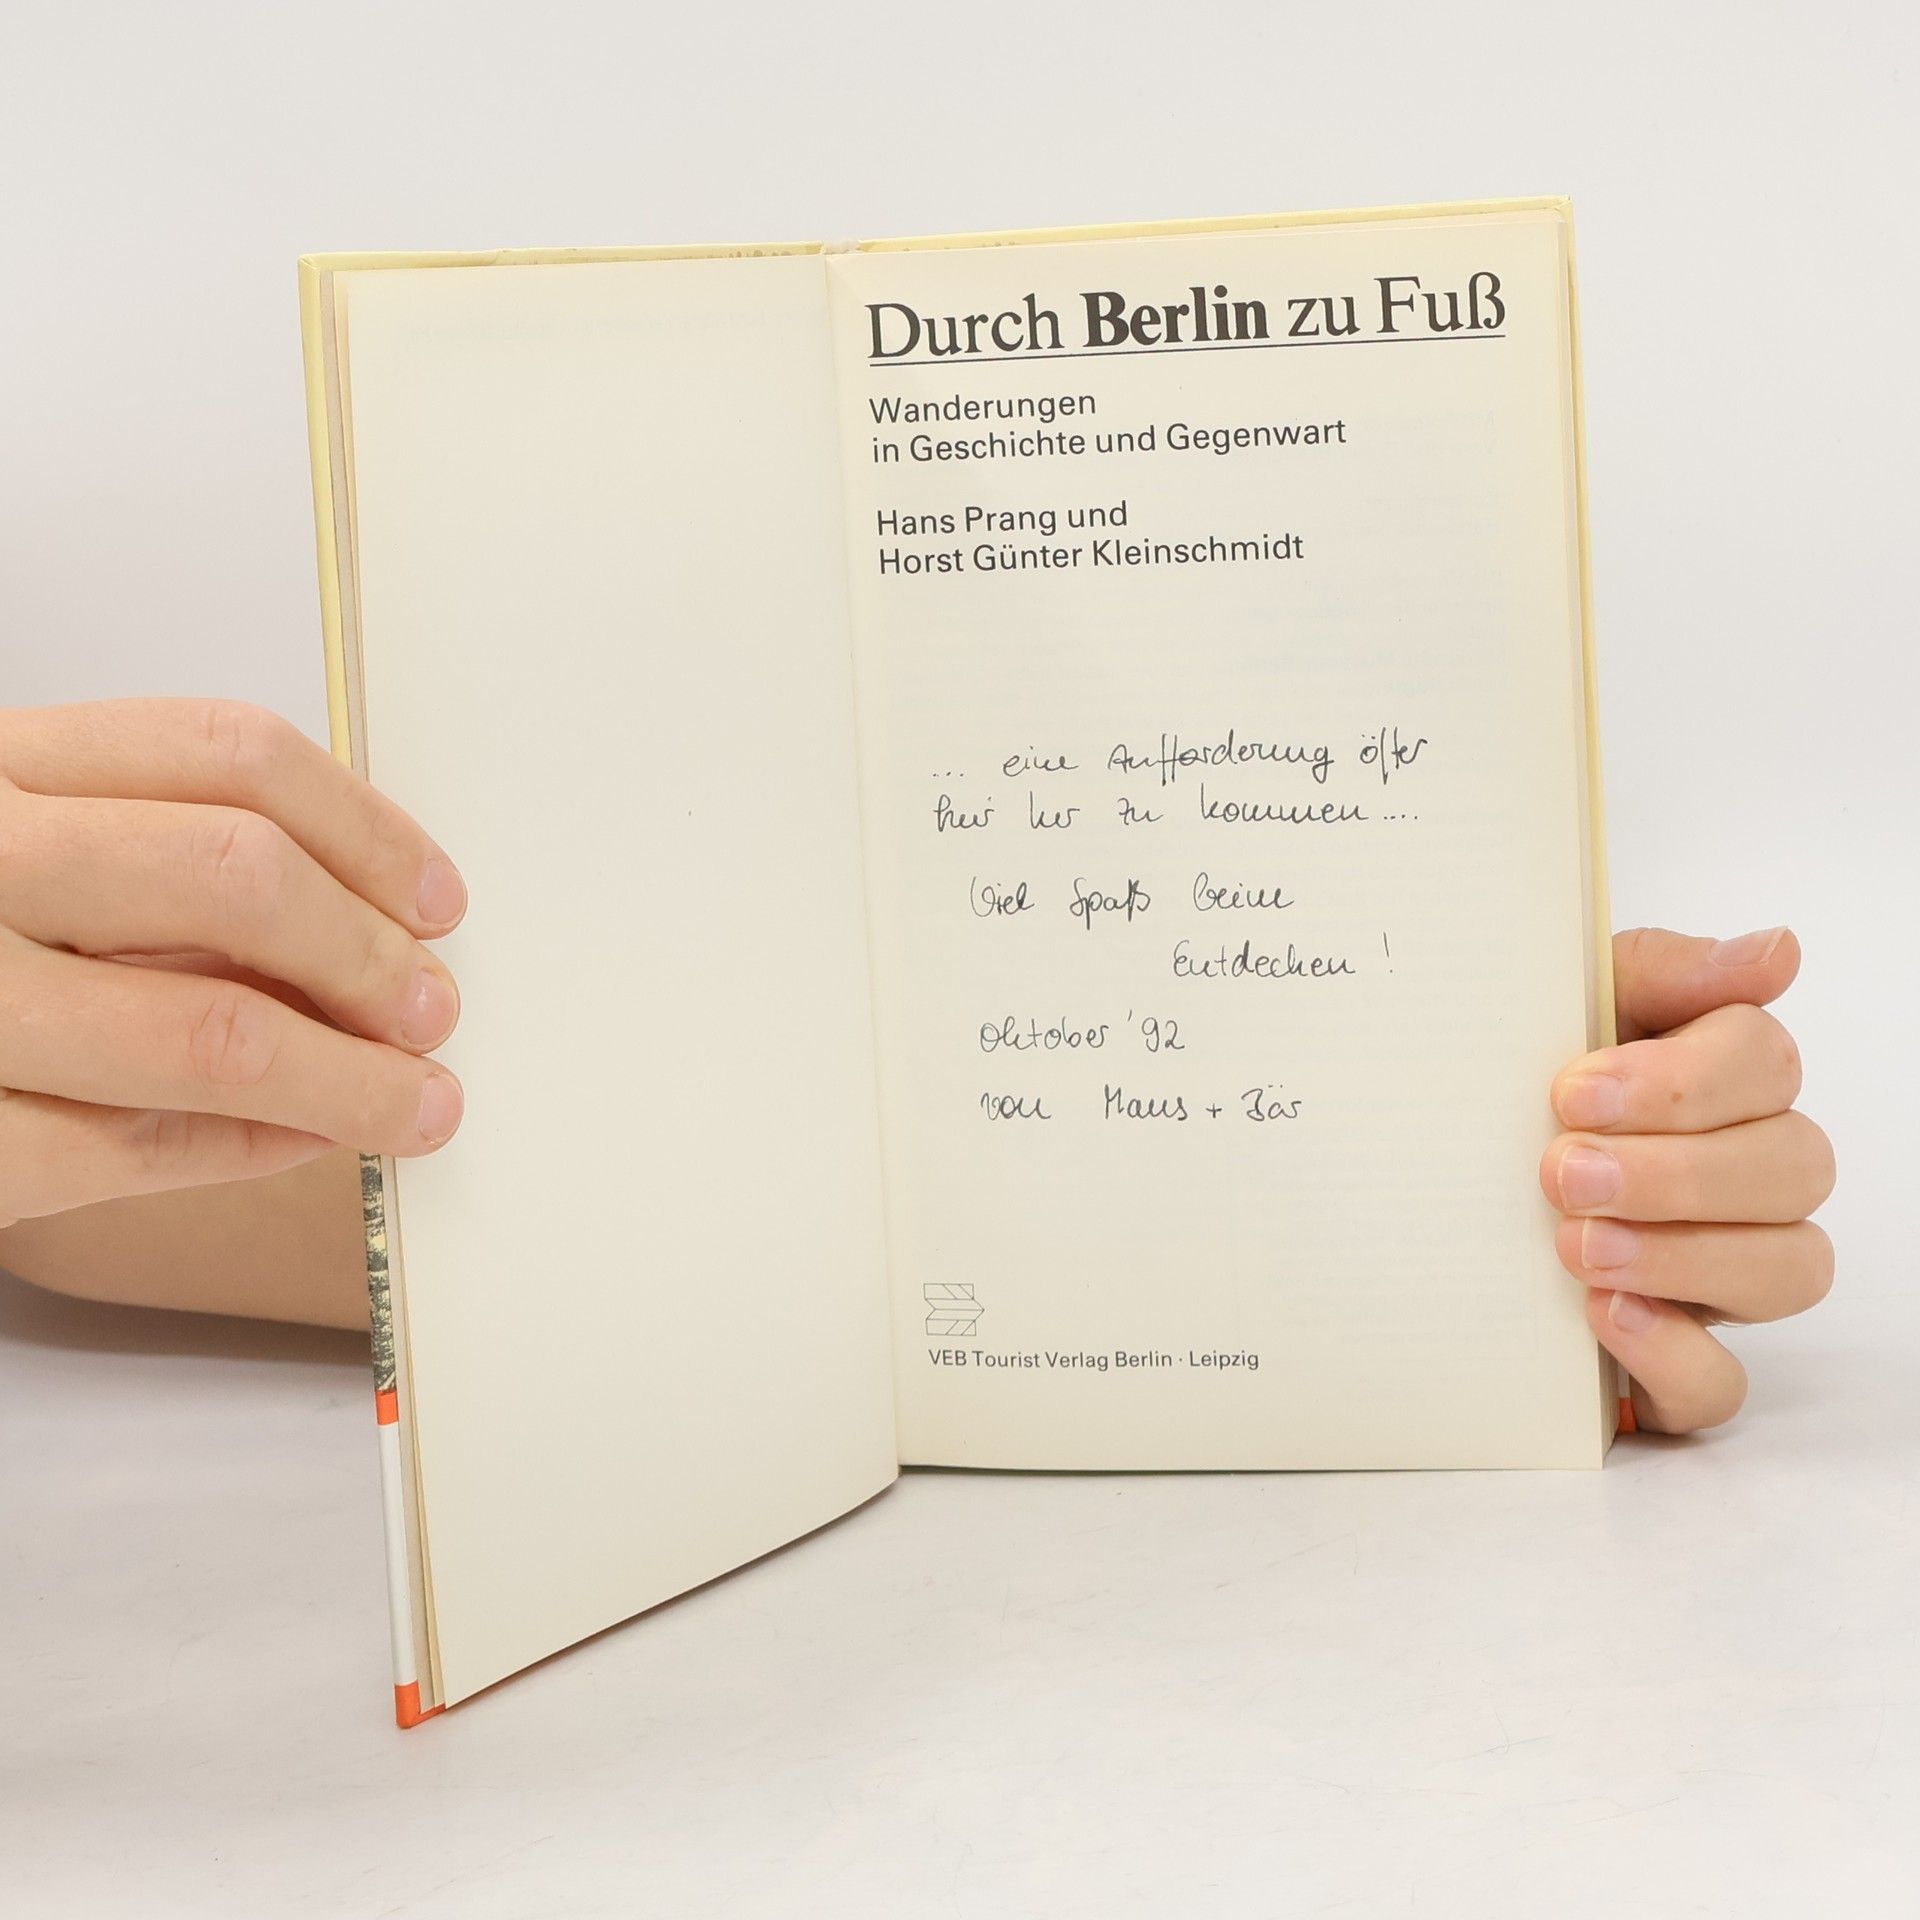 Durch Berlin zu Fuß
Wanderungen
in Geschichte und Gegenwart
Hans Prang und
Horst Günter Kleinschmidt
... eine Aufforderung öfter
hier her zu kommen ....
Viel Spaß beim
Entdecken !
Oktober '92
von Maus + Bär
VEB Tourist Verlag Berlin · Leipzig